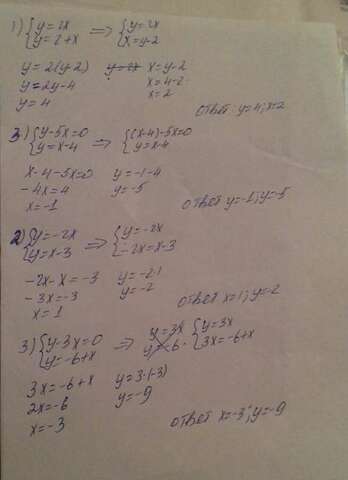 1) {y=2x y=2+x => {y=2x x=y-2
y=2(y-2) y=2x x=y-2
y=2y-4 x=4-2
y=4 x=2
ответ y=4; x=2
3) {y-5x=0 y=x-4 => {(x-4)-5x=0 y=x-4
x-4-5x=0 y=-1-4
-4x=4 y=-5
x=-1
ответ y=-1; y=-5
2) {y=-2x y=x-3 => {y=-2x -2x=x-3
-2x-x=-3 y=-2·1
-3x=-3 y=-2
x=1
ответ x=1; y=-2
3) {y-3x=0 y=-6+x => y=3x y=-6 {y=3x 3x=-6+x
3x=-6+x y=3·(-3)
2x=-6 y=-9
x=-3
ответ x=-3; y=-9